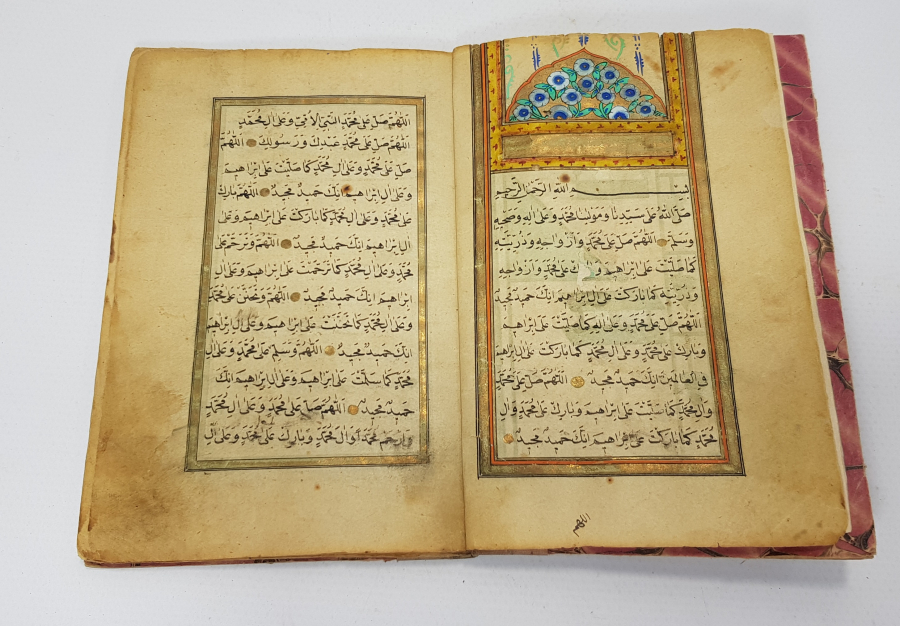 بسم الله الرحمن الرحيم
صلى الله على سيدنا ومولينا محمد وعلى اله وصحبه
وسلم اللهم صل على محمد وازواجه وذريته
كما صليت على ابراهيم وبارك على محمد وازواجه
وذريته كما باركت على ال ابراهيم انك حميد مجيد
اللهم صل على محمد وعلى اله كما صليت على ابراهيم
وبارك على محمد وعلى ال محمد كما باركت على ال ابراهيم
في العالمين انك حميد مجيد اللهم صل على محمد
وال محمد كما صليت على ابراهيم وبارك على محمد وال
محمد كما باركت على ابراهيم انك حميد مجيد
اللهم
اللهم صل على محمد النبي الامي وعلى ال محمد
اللهم صل على محمد عبدك ورسولك اللهم
صل على محمد وعلى ال محمد كما صليت على ابراهيم
وعلى ال ابراهيم انك حميد مجيد اللهم بارك
على محمد وعلى ال محمد كما باركت على ابراهيم وعلى
ال ابراهيم انك حميد مجيد اللهم وترحم على
محمد وعلى ال محمد كما ترحمت على ابراهيم وعلى ال
ابراهيم انك حميد مجيد اللهم وتحنن على محمد
وعلى ال محمد كما تحننت على ابراهيم وعلى ال ابراهيم
انك حميد مجيد اللهم وسلم على محمد وعلى ال
محمد كما سلمت على ابراهيم وعلى ال ابراهيم انك
حميد مجيد اللهم صل على محمد وعلى ال محمد
وارحم محمدا وال محمد وبارك على محمد وعلى ال